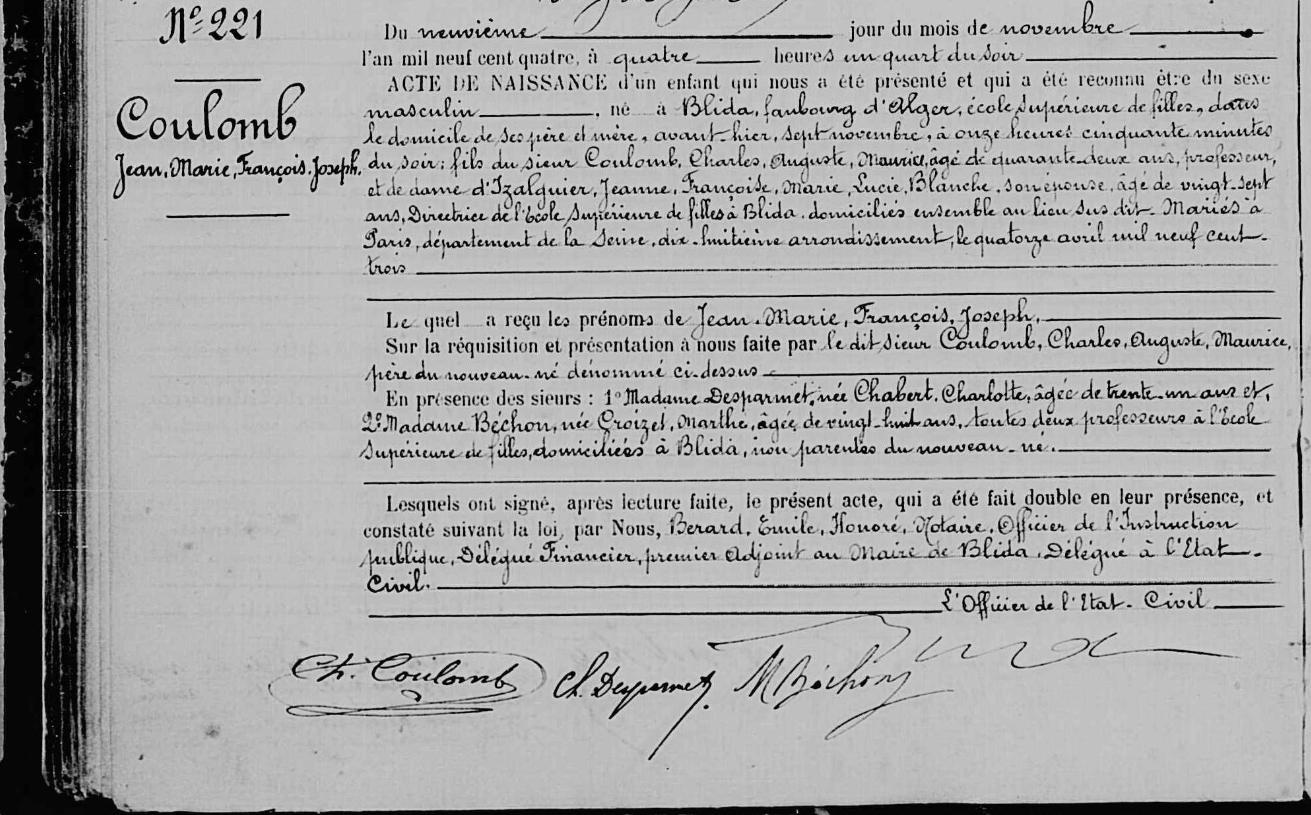 Nº 221
Coulomb
Jean, Marie, François, Joseph.
Du neuvième jour du mois de novembre
l'an mil neuf cent quatre, à quatre heures un quart du soir
ACTE DE NAISSANCE d'un enfant qui nous a été présenté et qui a été reconnu être du sexe
masculin, né à Blida, faubourg d'Alger, école supérieure de filles, dans
le domicile de ses père et mère, avant-hier, sept novembre, à onze heures cinquante minutes
du soir; fils du sieur Coulomb, Charles, Auguste, Maurice, âgé de quarante-deux ans, professeur,
et de dame d'Izalguier, Jeanne, Françoise, Marie, Lucie, Blanche, son épouse, âgé de vingt-sept
ans, Directrice de l'Ecole Supérieure de filles à Blida, domiciliés ensemble au lieu sus dit. Mariés à
Paris, département de la Seine, dix-huitième arrondissement, le quatorze avril mil neuf cent-
trois
Le quel a reçu les prénoms de Jean-Marie, François, Joseph.
Sur la réquisition et présentation à nous faite par le dit sieur Coulomb, Charles, Auguste, Maurice,
père du nouveau-né dénommé ci-dessus
En présence des sieurs : 1º Madame Desparmet, née Chabert, Charlotte, âgée de trente-un ans et,
2º Madame Béchon, née Croizet, Marthe, âgée de vingt-huit ans, toutes deux professeurs à l'Ecole
Supérieure de filles, domiciliées à Blida, non parentes du nouveau-né.
Lesquels ont signé, après lecture faite, le présent acte, qui a été fait double en leur présence, et
constaté suivant la loi, par Nous, Berard, Emile, Honoré, Notaire, Officier de l'Instruction
publique, Délégué Financier, premier Adjoint au Maire de Blida, Délégué à l'Etat-
Civil.
L'Officier de l'Etat-Civil
Ch. Coulomb Ch. Desparmet M Béchon